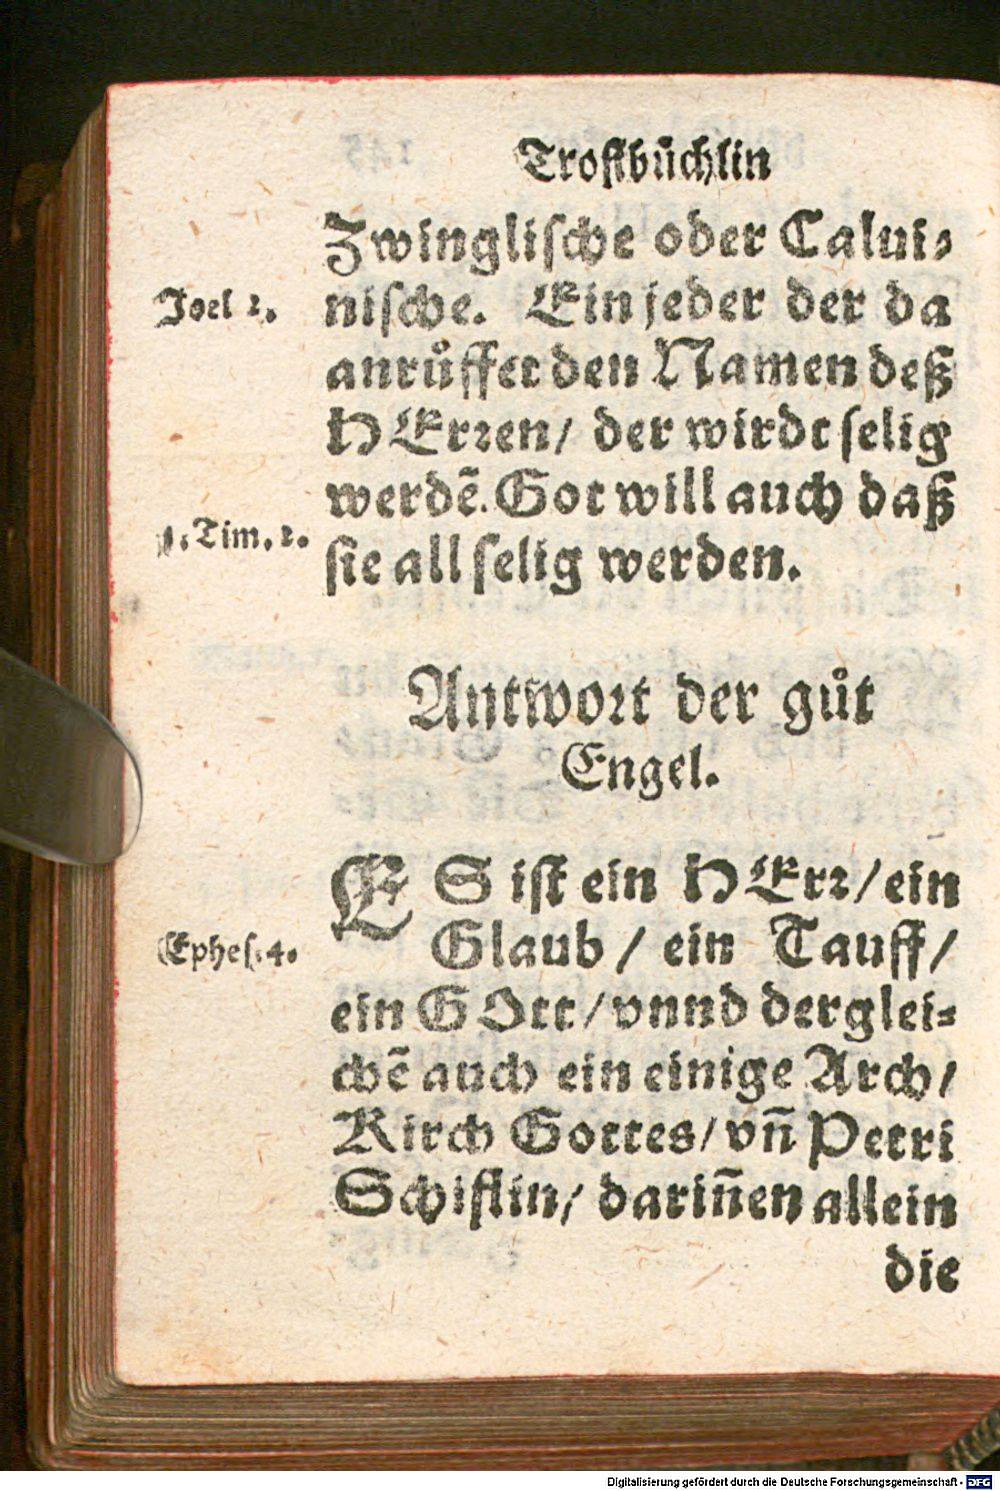 Trostbůchlin
Zwinglische oder Calui⸗
Joel 2.
nische. Ein jeder der da
anrůffet den Namen deß
HErꝛen/ der wirdt selig
werdẽ. Got will auch daß
1. Tim. 2.
sie all selig werden.
Antwort der gůt
Engel.
ES ist ein HErꝛ/ ein
Glaub / ein Tauff/
Ephes. 4.
ein GOtt/ vnnd derglei⸗
chẽ auch ein einige Arch/
Kirch Gottes/ vñ Petri
Schiflin/ dariñen allein
die
Digitalisierung gefördert durch die Deutsche Forschungsgemeinschaft - DFG